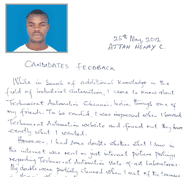 25th May, 2012
ATTAH HENRY C.
CANDIDATES FEEDBACK
While in search of additional knowledge in the
field of industrial automation, I came to know about
Technocrat Automation Chennai, India, through one of
my friends. To be candid I was impressed when I browsed
Technocrat Automation website and found out they have
exactly what I wanted.
However, I had some doubts whether what I saw in
the internet was real or just internet picture
regarding Technocrat Automation state of art Laboratories.
My doubts were partially cleared when I met of the